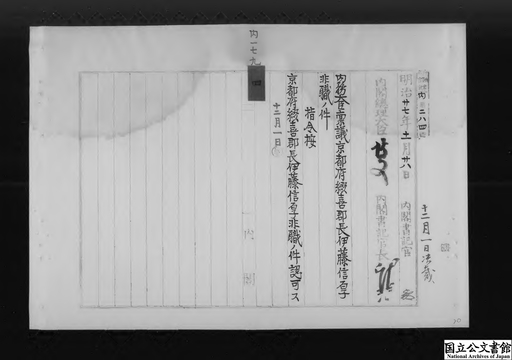 十二月一日決裁
内二八四
明治廿七年十一月廿八日
内閣書記官
内閣総理大臣
内閣書記官長
内務大臣稟議京都府綴喜郡長伊藤信百子
非職ノ件
指令按
京都府綴喜郡長伊藤信百子非職ノ件認可ス
十二月一日
内閣
国立公文書館
National Archives of Japan